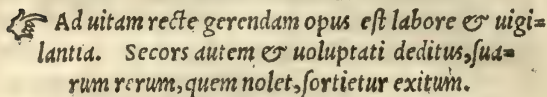 Ad uitam recte gerendam opus est labore & uigi=
lantia. Secors autem & uoluptati deditus, sua=
rum rerum, quem nolet, sortietur exitum.